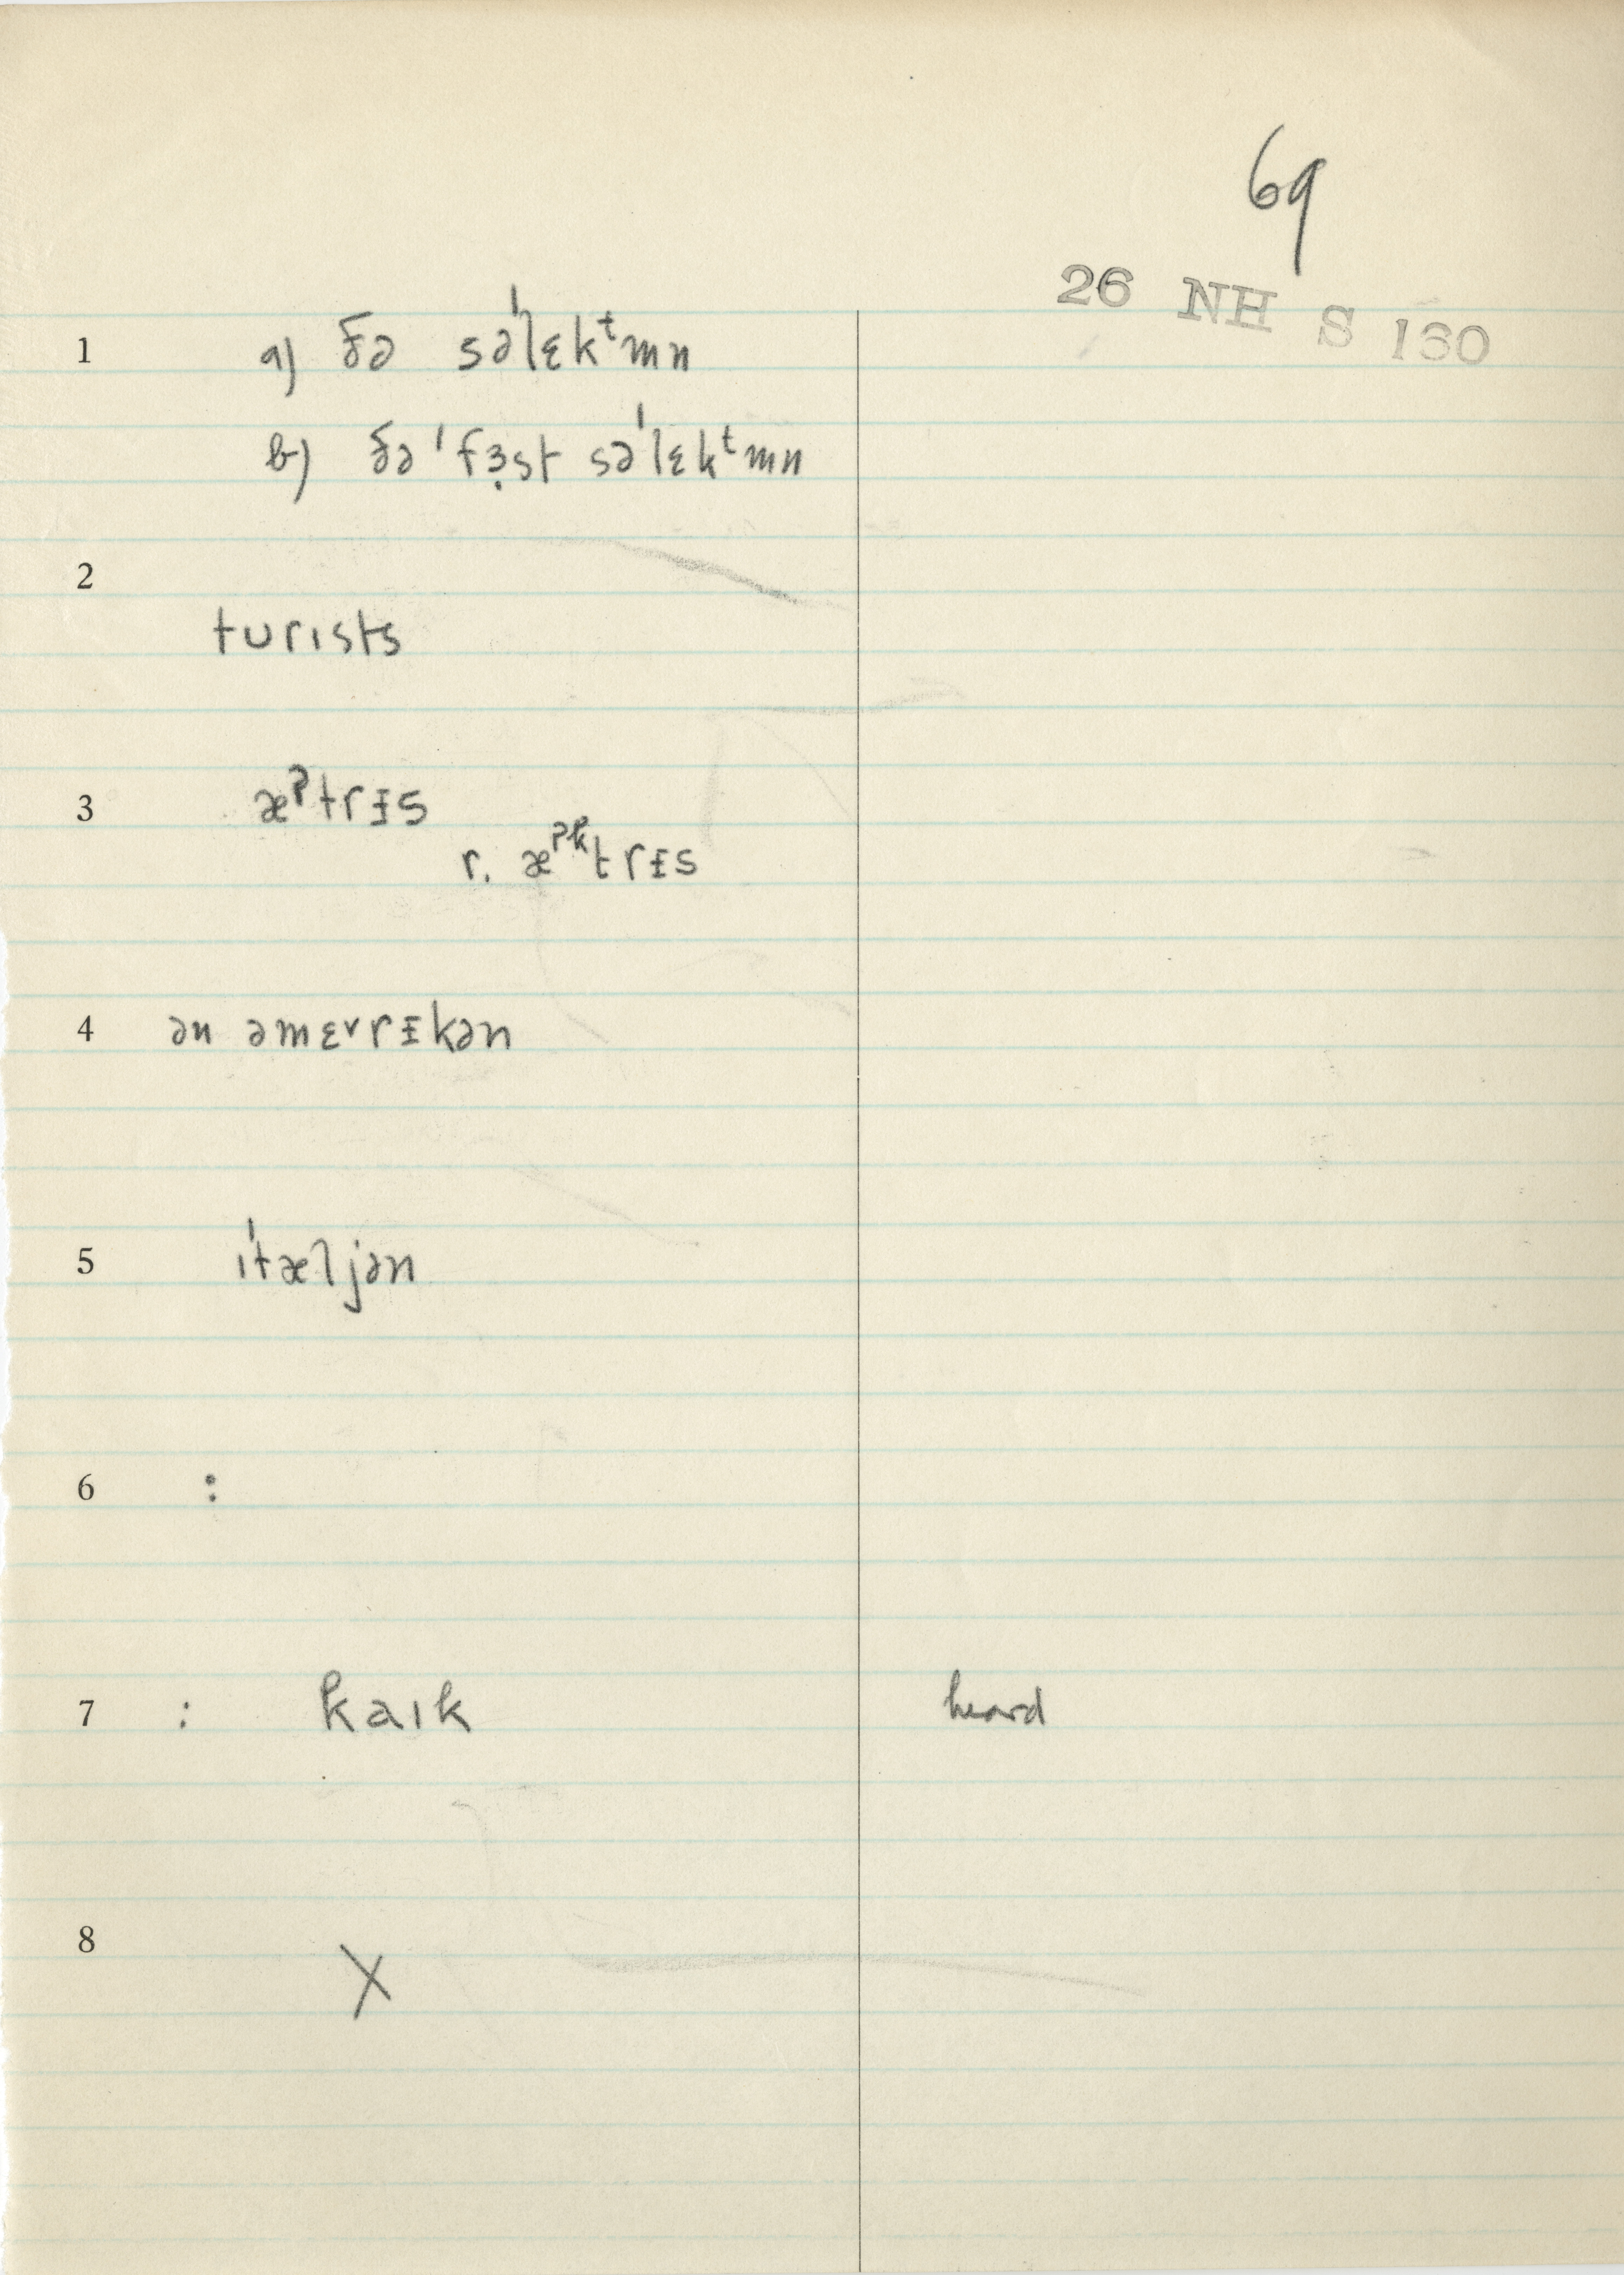 69
26 NH S 160
1 a) ðə səˈlɛkᵗmn
b) ðə ˈfɜ̣st səˈlɛkᵗmn
2
turɪsts
3 æˀtrᵻs
r. æˀᵏtrᵻs
4 ən əmɛ˅rᵻkən
5 ɪˈtæljən
6 :
7 : kaɪk heard
8 X